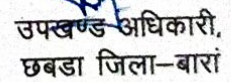 उपखण्ड अधिकारी,
छबडा जिला–बारां